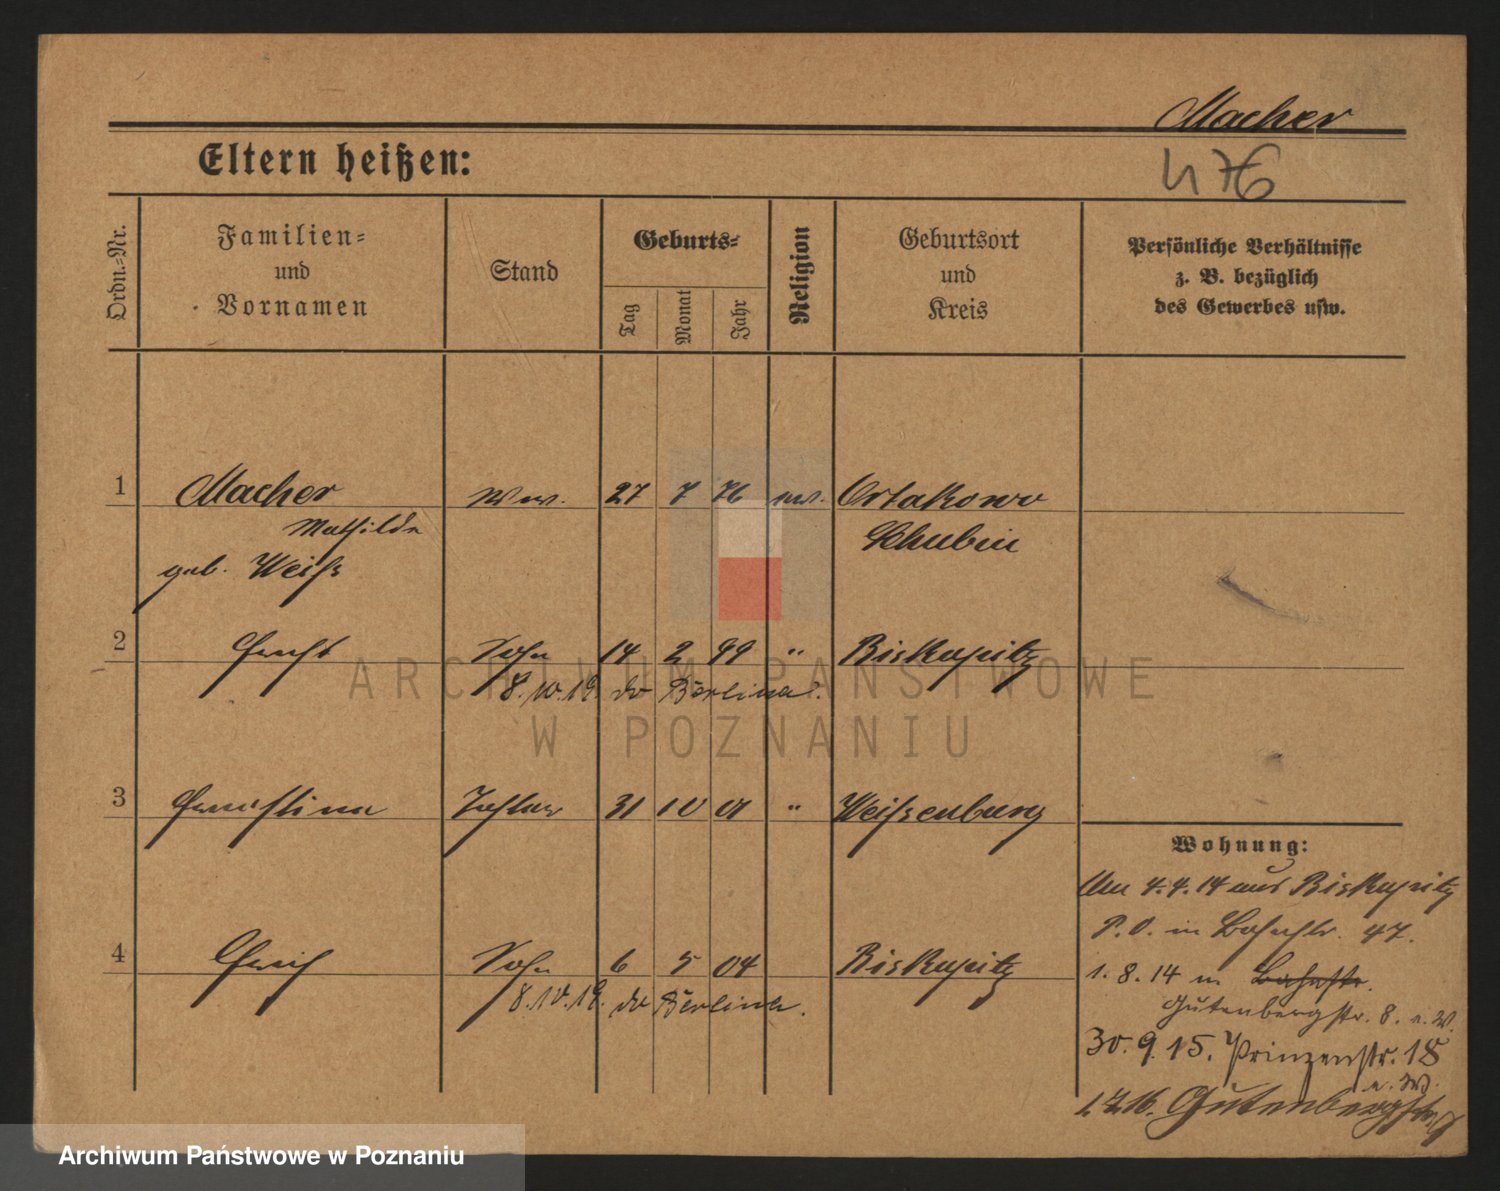 Macher
476
Eltern heißen:
Ordn.=Nr.
Familien=
und
Vornamen
Stand
Geburts=
Tag
Monat
Jahr
Religion
Geburtsort
und
Kreis
Persönliche Verhältnisse
z. B. bezüglich
des Gewerbes usw.
1 Macher Ww. 27 7 76 ev. Ortakowo
Mathilde Schubin
geb. Weiß
2 Sohn 14 2 99 " Biskupitz
8.10.19. do Berlina.
3 Ernestine Tochter 31 10 01 " Weißenburg
4 Erich Sohn 6 5 04 Biskupitz
8.10.19. do Berlina.
Wohnung:
Am 4.4.14 aus Biskupitz
P.O. in Bahnstr. 47.
1.8.14 in Bahnstr.
Gutenbergstr. 8. n. W.
30.9.15. Prinzenstr. 18
n. W.
1.7.16. Gutenbergstr. 9
ARCHIWUM PAŃSTWOWE
W POZNANIU
Archiwum Państwowe w Poznaniu